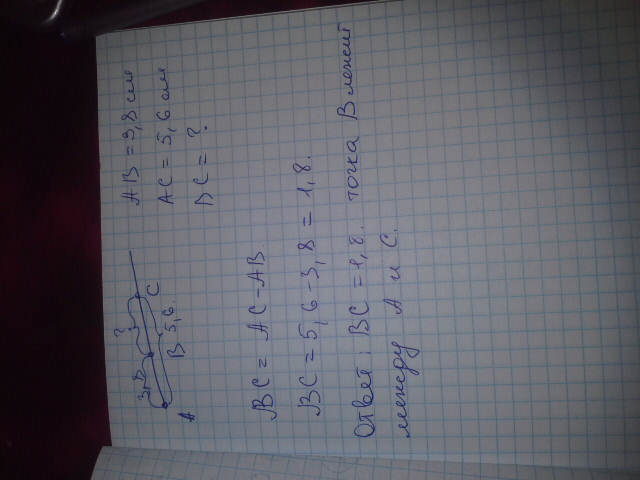 3,8 ?
A B 5,6. C
AB = 3,8 см
AC = 5,6 см
BC = ?
BC = AC-AB
BC = 5,6-3,8 = 1,8.
Ответ: BC = 1,8. точка В лежит
между А и С.